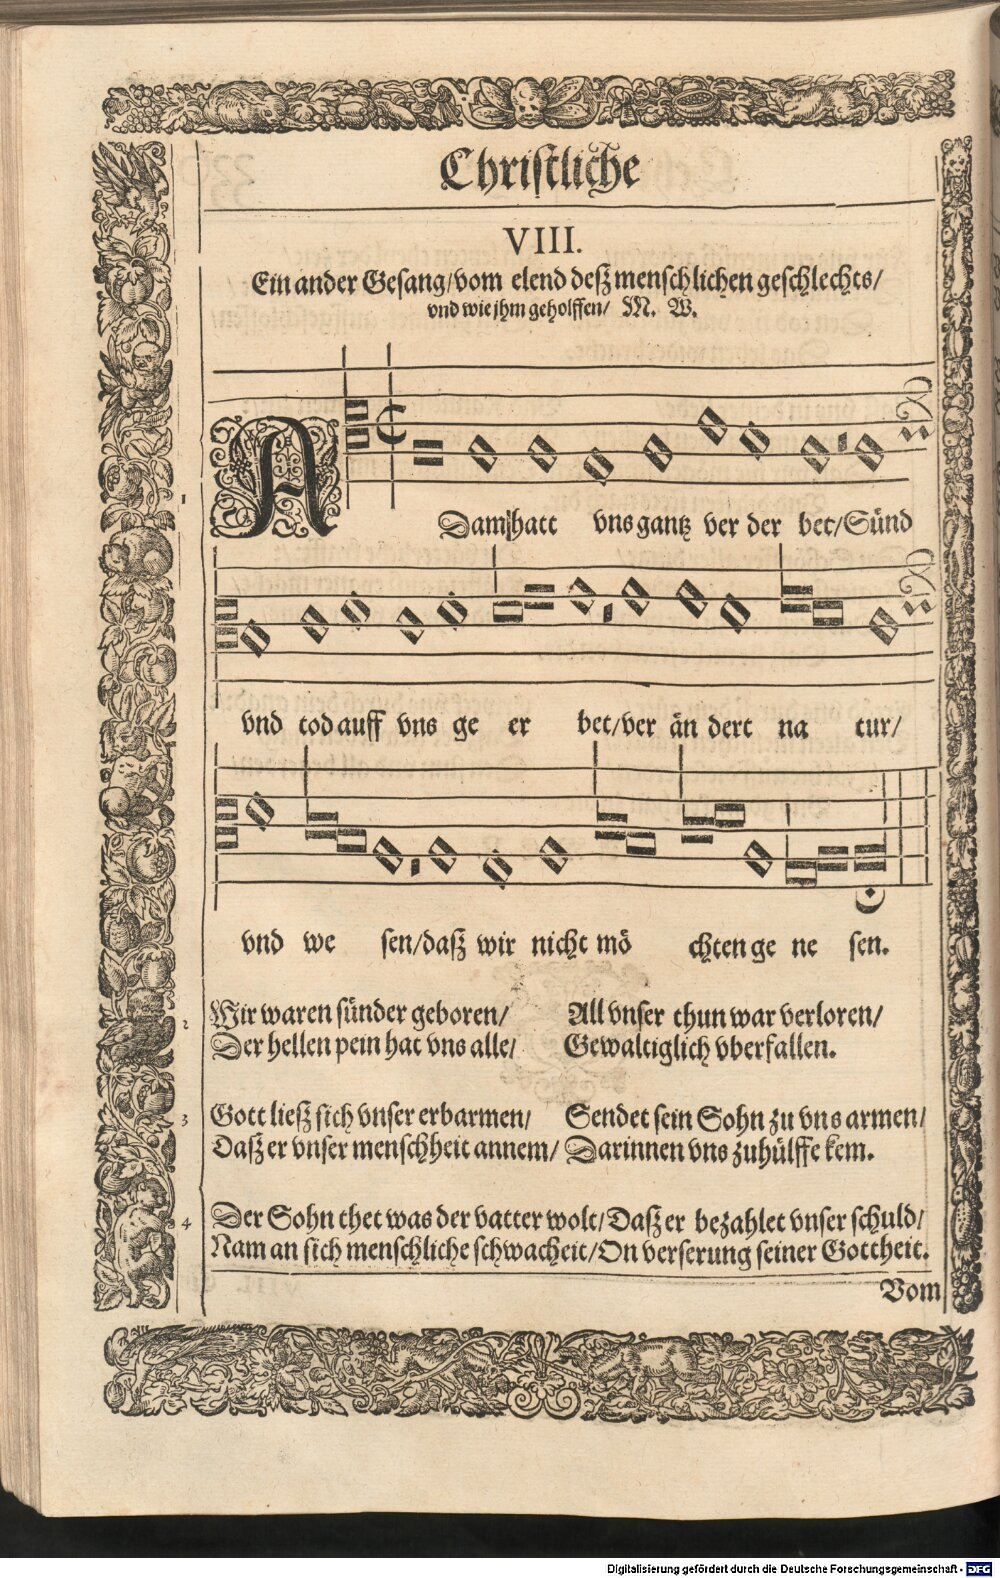 Christliche
VIII.
Ein ander Gesang/vom elend deß menschlichen geschlechts/
vnd wie jhm geholffen/ M. W.
1
ADam hatt vns gantz ver der bet/Sünd
vnd tod auff vns ge er bet/ver än dert na tur/
vnd we sen/daß wir nicht mö chten ge ne sen.
2 Wir waren sünder geboren/ All vnser thun war verloren/
Der hellen pein hat vns alle/ Gewaltiglich vberfallen.
3 Gott ließ sich vnser erbarmen/ Sendet sein Sohn zu vns armen/
Daß er vnser menschheit annem/ Darinnen vns zuhülffe kem.
4 Der Sohn thet was der vatter wolt/Daß er bezahlet vnser schuld/
Nam an sich menschliche schwacheit/On verserung seiner Gottheit.
Vom
Digitalisierung gefördert durch die Deutsche Forschungsgemeinschaft - DFG